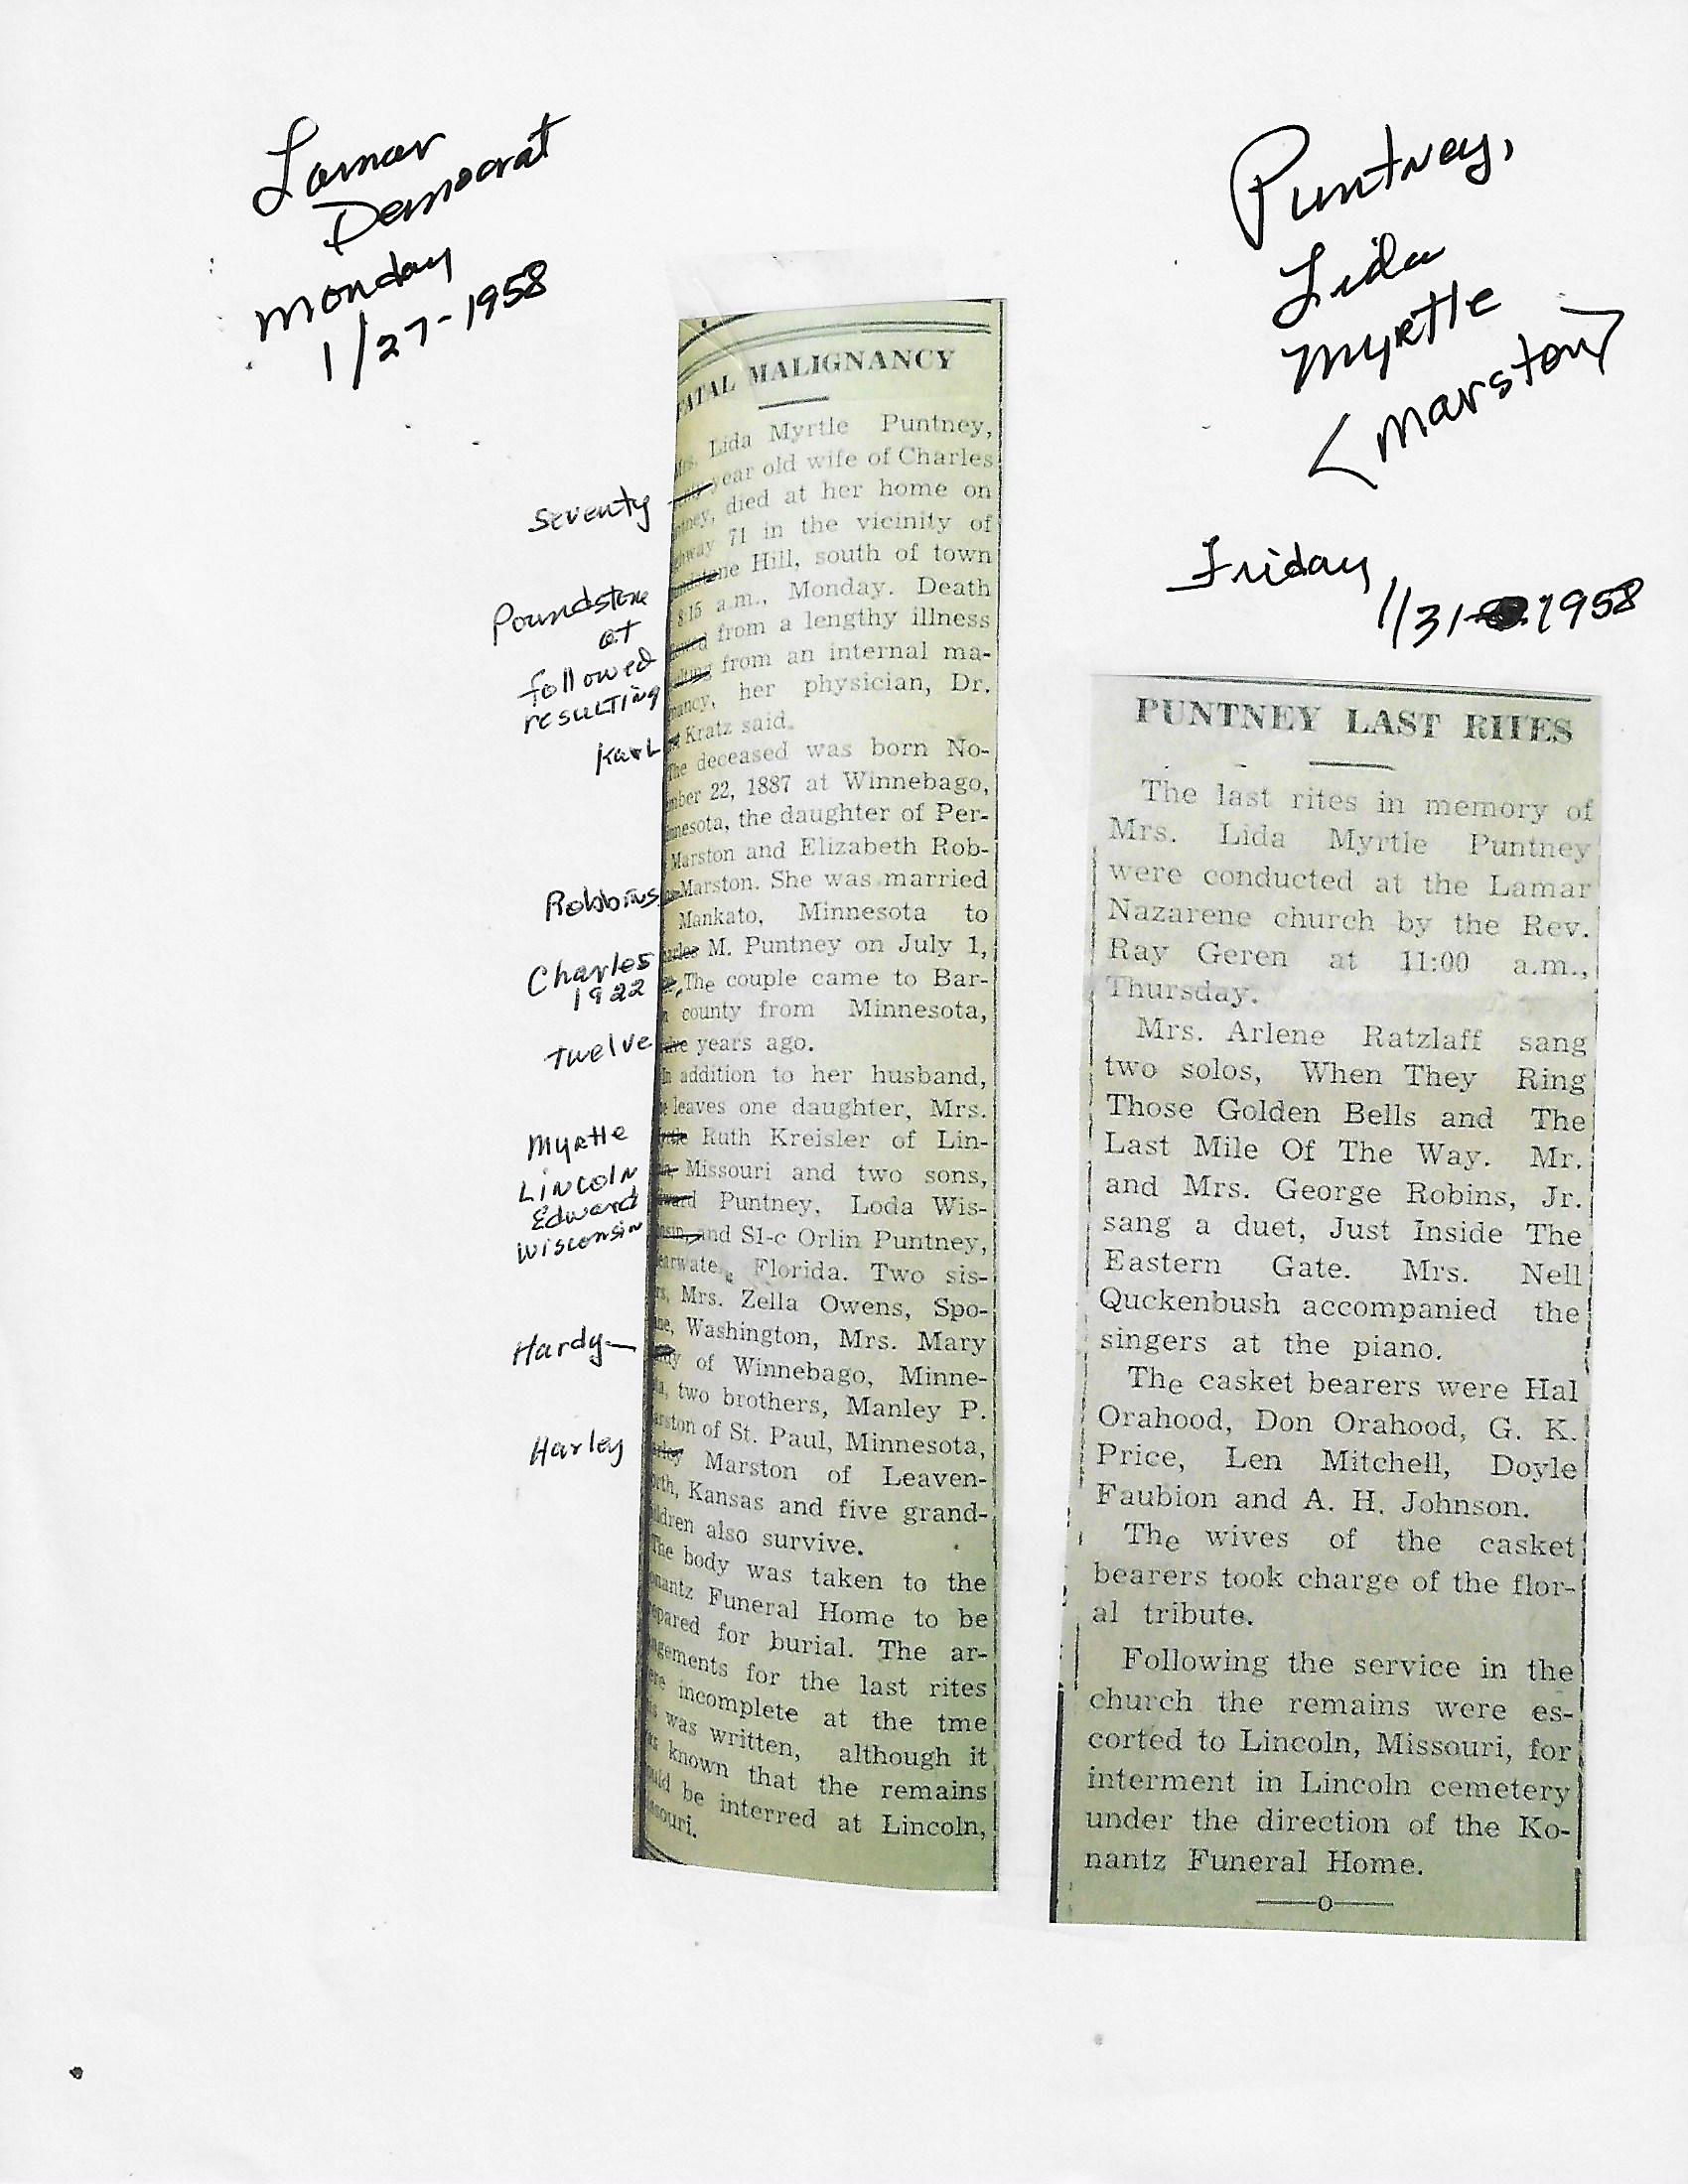 Lamar
Democrat
Monday
1/27-1958
Puntney,
Lida
Myrtle
<Marston>
Friday
1/31 1958
Seventy
Poundstone
at
followed
resulting
Karl
Robbins
Charles
1922
Twelve
Myrtle
Lincoln
Edward
Wisconsin
Hardy
Harley
FATAL MALIGNANCY
Mrs. Lida Myrtle Puntney,
year old wife of Charles
ntney, died at her home on
ghway 71 in the vicinity of
undstone Hill, south of town
8:15 a.m., Monday. Death
lowed from a lengthy illness
ulting from an internal ma-
nancy, her physician, Dr.
Kratz said.
The deceased was born No-
mber 22, 1887 at Winnebago,
nnesota, the daughter of Per-
Marston and Elizabeth Rob-
Marston. She was married
Mankato, Minnesota to
harles M. Puntney on July 1,
The couple came to Bar-
county from Minnesota,
years ago.
In addition to her husband,
e leaves one daughter, Mrs.
yrtle Ruth Kreisler of Lin-
Missouri and two sons,
dward Puntney, Loda Wis-
nsin, and S1-c Orlin Puntney,
earwate, Florida. Two sis-
rs, Mrs. Zella Owens, Spo-
ne, Washington, Mrs. Mary
dy of Winnebago, Minne-
a, two brothers, Manley P.
arston of St. Paul, Minnesota,
arley Marston of Leaven-
orth, Kansas and five grand-
ildren also survive.
The body was taken to the
nantz Funeral Home to be
epared for burial. The ar-
agements for the last rites
ere incomplete at the tme
s was written, although it
as known that the remains
ould be interred at Lincoln,
ssouri.
PUNTNEY LAST RITES
The last rites in memory of
Mrs. Lida Myrtle Puntney
were conducted at the Lamar
Nazarene church by the Rev.
Ray Geren at 11:00 a.m.,
Thursday.
Mrs. Arlene Ratzlaff sang
two solos, When They Ring
Those Golden Bells and The
Last Mile Of The Way. Mr.
and Mrs. George Robins, Jr.
sang a duet, Just Inside The
Eastern Gate. Mrs. Nell
Quckenbush accompanied the
singers at the piano.
The casket bearers were Hal
Orahood, Don Orahood, G. K.
Price, Len Mitchell, Doyle
Faubion and A. H. Johnson.
The wives of the casket
bearers took charge of the flor-
al tribute.
Following the service in the
church the remains were es-
corted to Lincoln, Missouri, for
interment in Lincoln cemetery
under the direction of the Ko-
nantz Funeral Home.
—o—